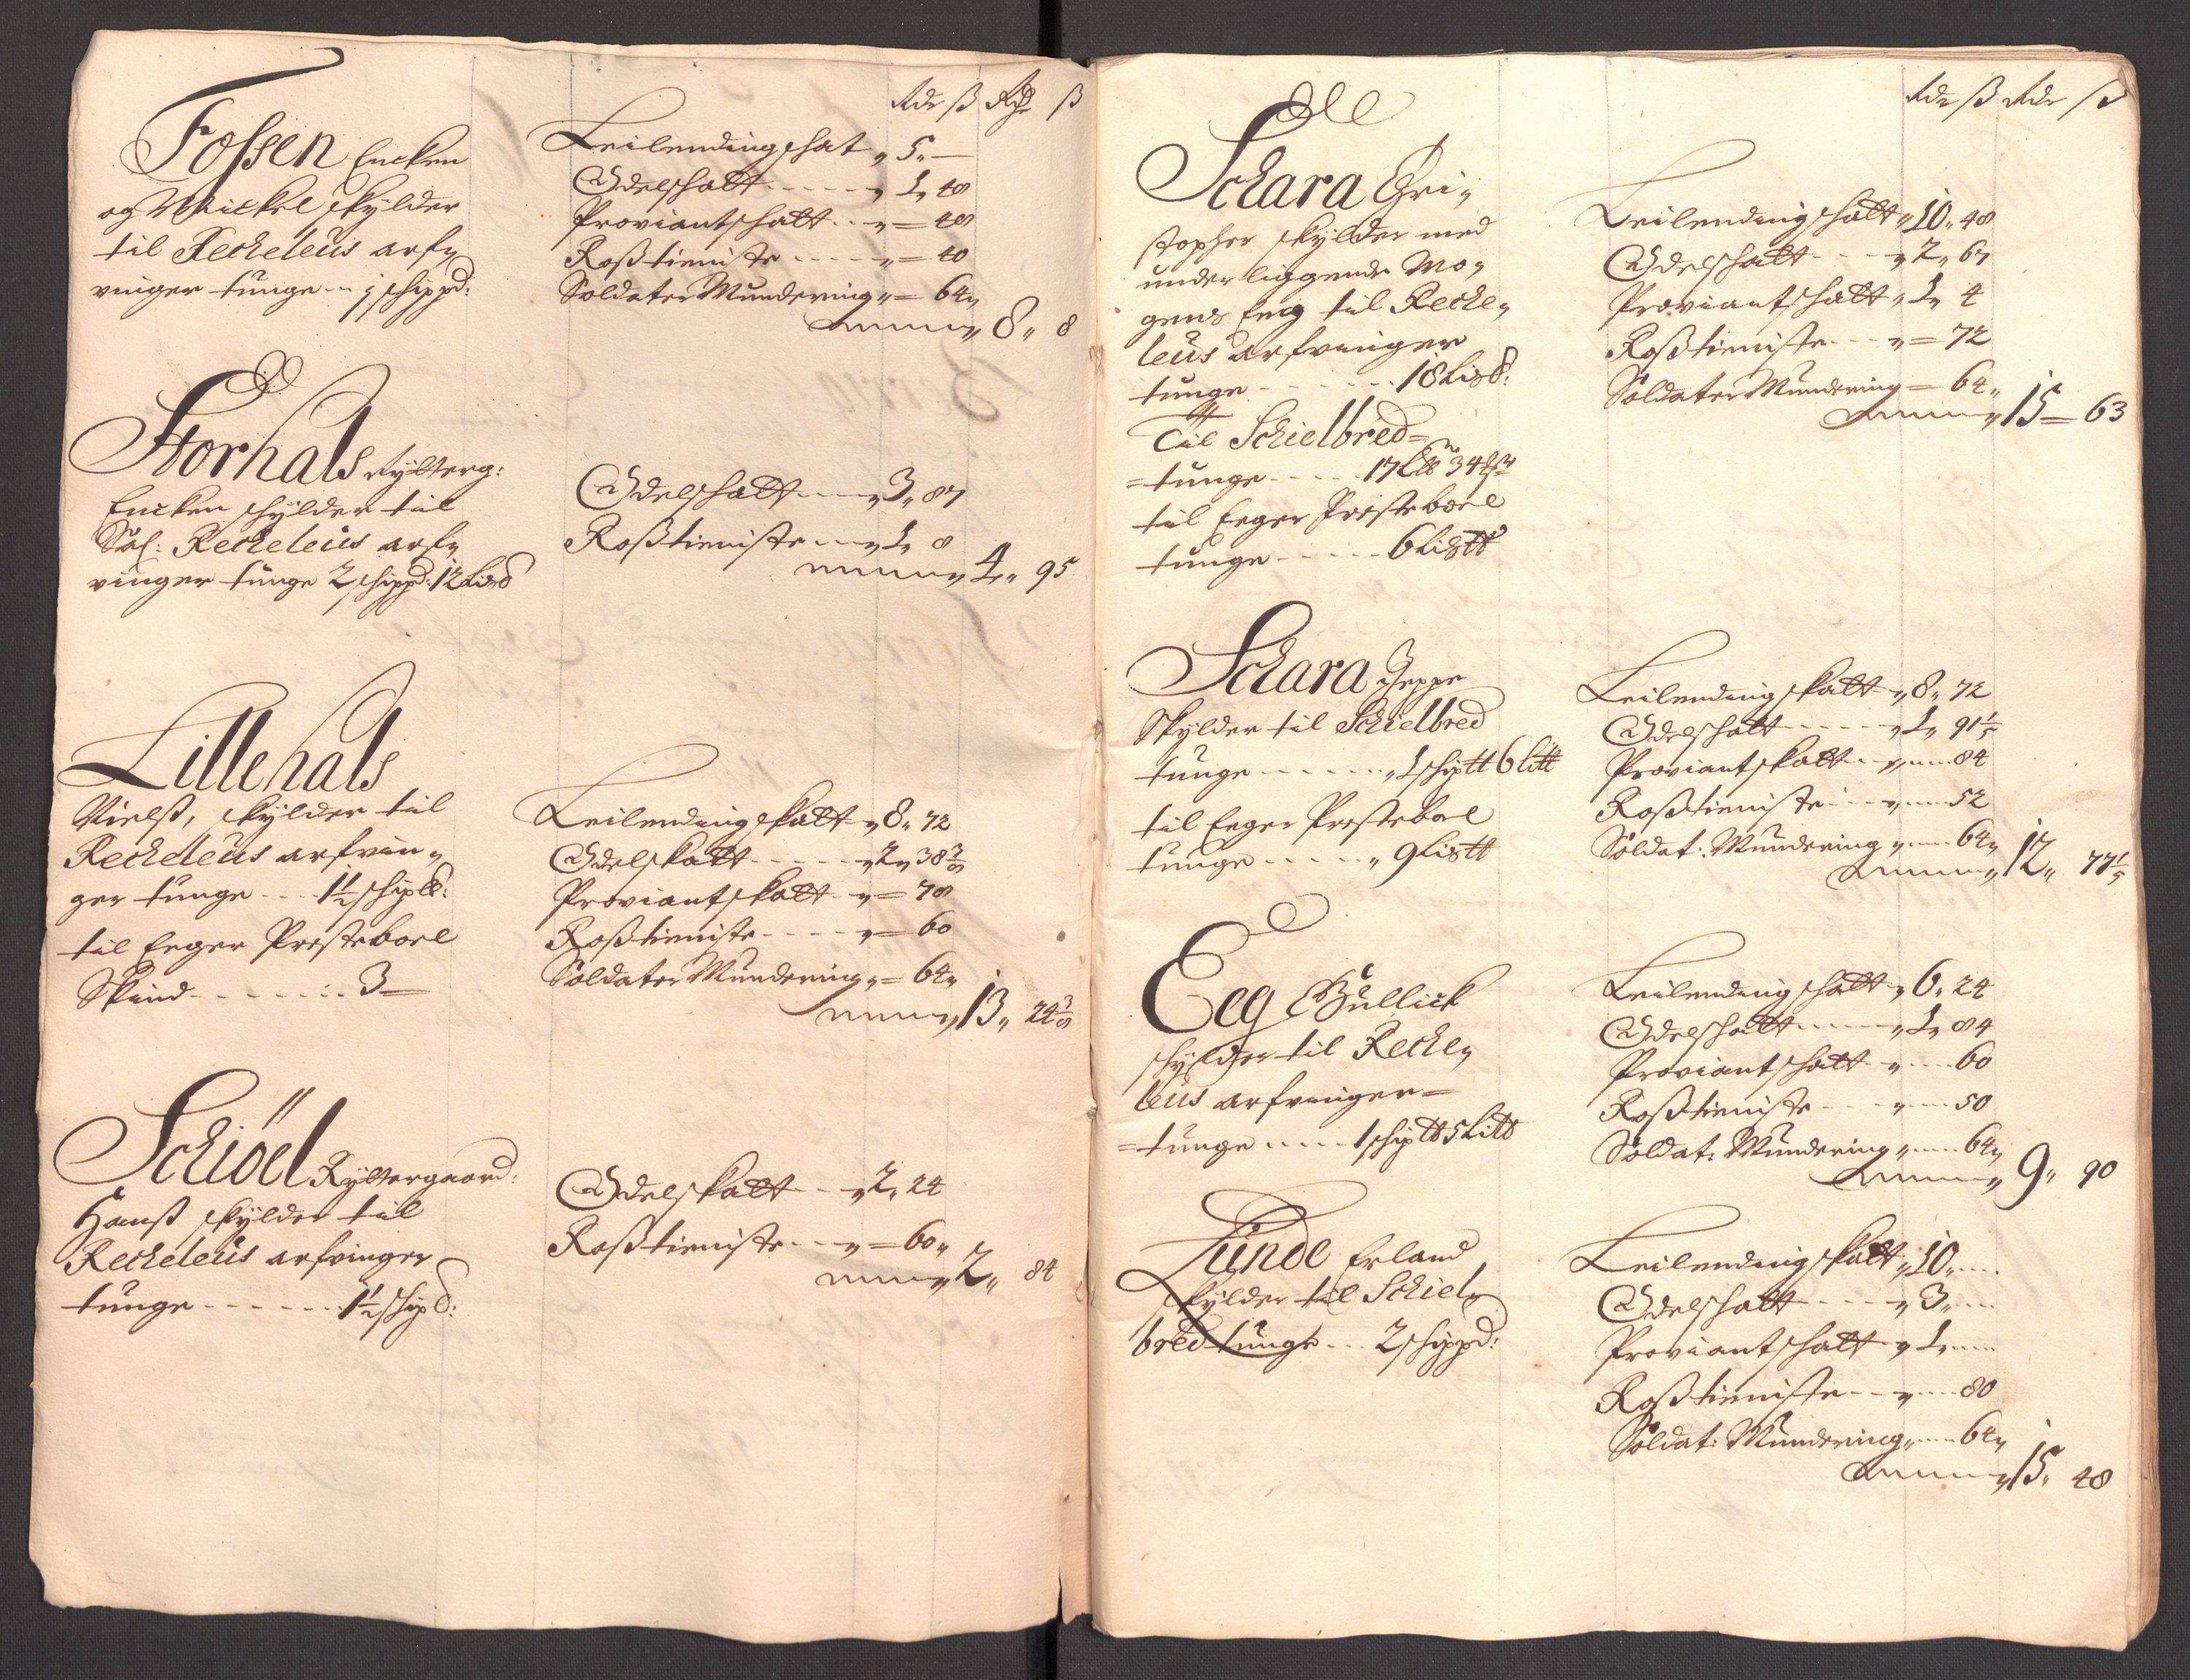 Rdr ß Rdr ß
Fossen Encken
og Mickel skylder
til Recheleus arf„
vinger tunge .. 1 schippd:
Leilendingschat „ 5„ —
Odelschatt ----- „ 1„ 48
Proviantschatt .. „ = 48
Roßtieniste ----- „ = 40
Soldater Mundering „ = 64„
8„ 8
Storhals Rytterg:
Encken schylder til
Sal: Recheleus arf„
vinger tunge 2 schippd: 12 Lisd
Odelschatt ---- „ 3„ 87
Roßtieniste --- „ 1„ 8
4„ 95
Lillehals
Nielß, skylder til
Recheleus arfvin„
ger tunge --- 1½ schipd:
til Eeger Presteboel
Skind ------- 3 —
Leilendingskatt „ 8„ 72
Odelskatt ----- „ 2„ 38 3/8
Proviantskatt „ = 78
Roßtieniste ---- „ = 60
Soldater Mundering „ = 64„
13„ 24 3/8
Schiöel Ryttergaard:
Hanß skylder til
Recheleus arfvinger
tunge ------ 1½ schipd:
Odelskatt --- „ 2„ 24
Roßtieniste --- „ = 60„
2„ 84
Rdr ß Rdr ß
Schara Chri„
stopher skylder med
underliggende Mo„
gens Eeg til Reche„
leus arfvinger
tunge ------- 18 Lisd:
Til Schielbred =
= tunge ---- 17 L
til Eeger Presteboel
tunge ----- 6 Listt
Leilendingschatt „ 10„ 48
Odelschatt --- „ 2„ 67
Proviantschatt „ 1„ 4
Roßtieniste --- „ = 72
Soldater Mundering = 64„
15 = 63
Schara Jeppe
Skylder til Schielbred
tunge ------ „ 1 schiptt 6 Litt
til Eeger Presteboel
tunge ----- „ 9 Listt
Leilendingskatt „ 8„ 72
Odelschatt ----- „ 1„ 91 1/5
Proviantskatt -- „ ---- 84
Roßtieniste --- „ ---- 52
Soldat: Mundering „ ---- 64„
12„ 77 1/5
Eeg Gullick
schylder til Reche„
leus arfvinger =
= tunge ---- 1 schiptt 5 Litt
Leilendingschatt „ 6„ 24
Odelschatt ----- „ 1„ 84
Proviantschatt „ ---- 60
Roßtieniste --- „ ---- 50
Soldat: Mundering „ ---- 64„
9„ 90
Lunde Erland
skylder til Schiel„
bred tunge --- 2 schippd:
Leilendingskatt „ 10„ ----
Odelschatt ---- „ 3„ ----
Proviantschatt „ 1„ ----
Roßtieniste --- „ ---- 80
Soldat: Mundering „ ---- 64„
15„ 48